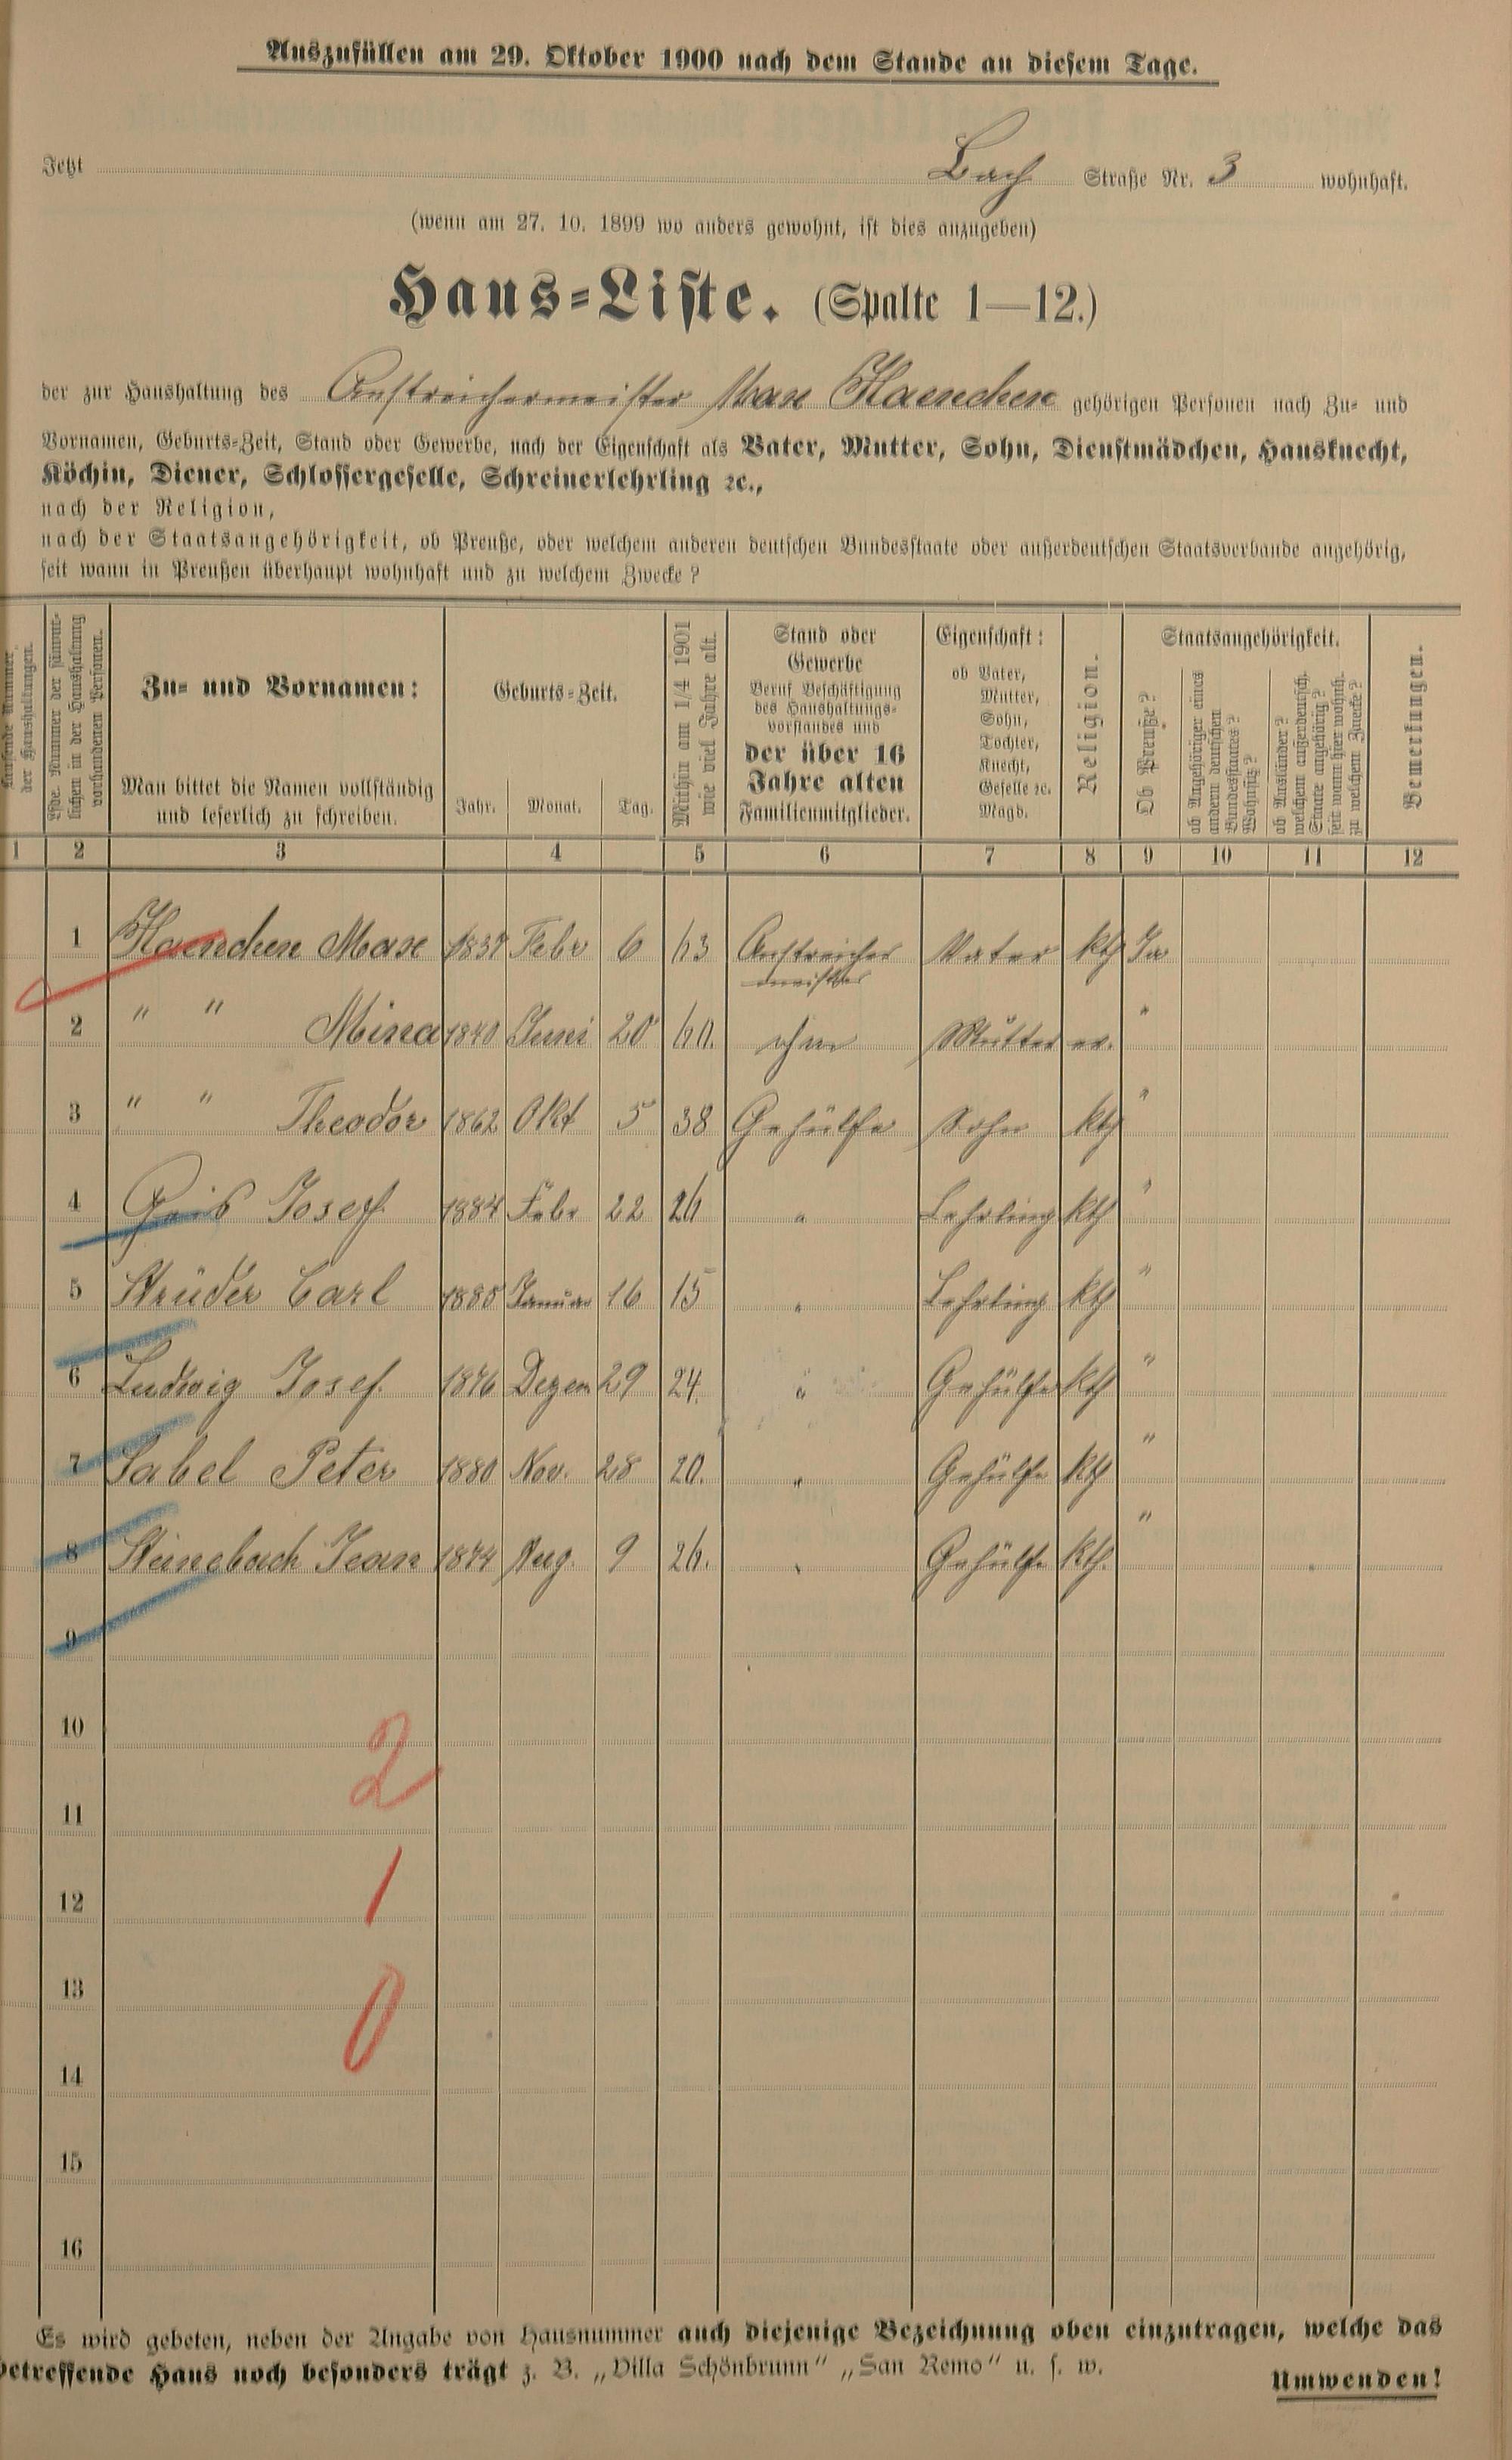 Auszufüllen am 29. Oktober 1900 nach dem Stande an diesem Tage.
Jetzt Bach Straße Nr. 3 wohnhaft.
(wenn am 27. 10. 1899 wo anders gewohnt, ist dies anzugeben)
Haus=Liste. (Spalte 1—12.)
der zur Haushaltung des Anstreichermeister Max Haenchen gehörigen Personen nach Zu= und
Vornamen, Geburts=Zeit, Stand oder Gewerbe, nach der Eigenschaft als Vater, Mutter, Sohn, Dienstmädchen, Hausknecht,
Köchin, Diener, Schlossergeselle, Schreinerlehrling ꝛc.,
nach der Religion,
nach der Staatsangehörigkeit, ob Preuße, oder welchem anderen deutschen Bundesstaate oder außerdeutschen Staatsverbande angehörig,
seit wann in Preußen überhaupt wohnhaft und zu welchem Zwecke?
Laufende Nummer der Haushaltungen.
Lfde. Nummer der sämmt=lichen in der Haushaltung vorhandenen Personen.
Zu= und Vornamen:
Man bittet die Namen vollständig
und leserlich zu schreiben.
Geburts=Zeit.
Jahr. Monat. Tag.
Mithin am 1/4 1901 wie viel Jahre alt.
Stand oder
Gewerbe
Beruf Beschäftigung
des Haushaltungs=
vorstandes und
der über 16
Jahre alten
Familienmitglieder.
Eigenschaft:
ob Vater,
Mutter,
Sohn,
Tochter,
Knecht,
Geselle ꝛc.
Magd.
Religion.
Staatsangehörigkeit.
Ob Preuße?
ob Angehöriger eines andern deutschen Bundesstaates? Wohnsitz?
ob Ausländer? welchem außerdeutsch. Staate angehörig? seit wann hier wohnh. zu welchem Zwecke?
Bemerkungen.
1 2 3 4 5 6 7 8 9 10 11 12
1 Haenchen Max 1837 Febr 6 63 Anstreicher meister Vater kth Ja
2 " " Mina 1840 Juni 20 60. ohne Mutter ev. "
3 " " Theodor 1862 Okt 5 38 Gehülfe Sohn kth "
4 Josef 1884 Febr 22 16 " Lehrling kth "
5 Strüder Carl 1885 Januar 16 15 " Lehrling kth "
6 Ludwig Josef 1876 Dezem 29 24. " Gehülfe kth "
7 Sabel Peter 1880 Nov. 28 20. " Gehülfe kth "
8 Steinebach Jean 1874 Aug. 9 26. " Gehülfe kth. "
9
10
2
11
12
1
13
0
14
15
16
Es wird gebeten, neben der Angabe von Hausnummer auch diejenige Bezeichnung oben einzutragen, welche das
betreffende Haus noch besonders trägt z. B. „Villa Schönbrunn“ „San Remo“ u. s. w.
Umwenden!